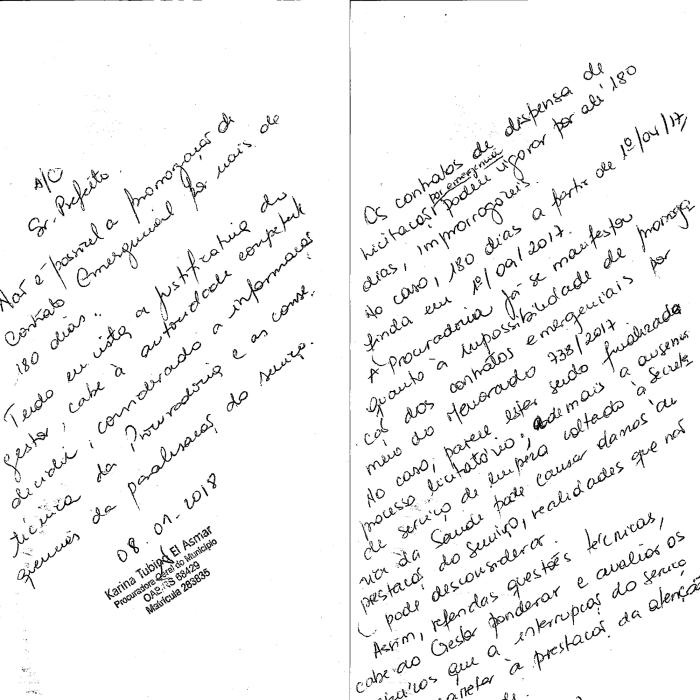 A/C
Sr. Prefeito.
Não é possível a prorrogação do
contrato emergencial por mais de
180 dias.
Tendo em vista a justificativa do
gestor, cabe à autoridade competente
decidir, considerado a informação
técnica da Procuradoria e as conse-
quências da paralisação do serviço.
08.01.2018
Karina Tubino El Asmar
Procuradora Geral do Município
OAB/RS 68429
Matrícula 283835
Os contratos de dispensa de
licitação por emergência podem vigorar por até 180
dias, improrrogáveis.
No caso, 180 dias a partir de 1º/04/17,
finda em 1º/09/2017.
A Procuradoria já se manifestou
quanto à impossibilidade de prorroga
ção dos contratos emergenciais por
meio do Memorando 738/2017
No caso, parece estar sendo finalizado
processo licitatório; ademais a ausência
de serviço de limpeza voltado à Secreta
ria da Saúde pode causar danos na
prestação do serviço, realidades que não
pode desconsiderar.
Assim, referidas questões técnicas,
cabe ao Gestor ponderar e avaliar os
que a interrupção do serviço
à prestação da atenção